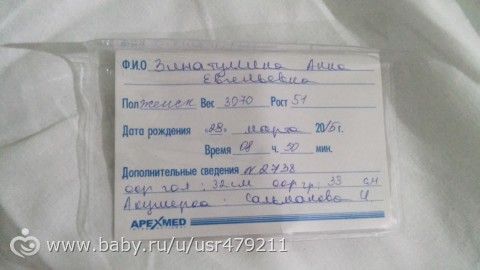 Ф.И.О Зинатуллина Анна
Евгеньевна
Пол женск Вес 3070 Рост 51
Дата рождения «28» марта 2015г.
Время 08 ч. 30 мин.
Дополнительные сведения № 2738
окр гол: 32 см окр гр: 33 см
Акушерка: Салманова И
APEXMED
www.baby.ru/u/usr479211